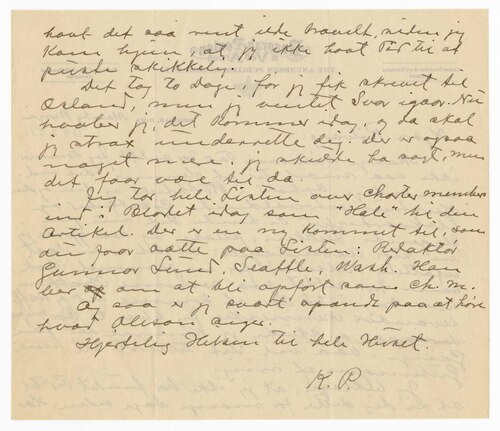 havt det saa rent ilde travelt, siden jeg
kom hjem, at jeg ikke havt Tid til at
püste skikkelig.
Det tog to Dage, før jeg fik skrevet til
Osland, men jeg ventet Svar igaar. Nu
haaber jeg, det kommer idag, og da skal
jeg strax ünderrette dig. Der er ogsaa
noget mere, jeg skülde ha sagt, men
det faar være til da.
Jeg tar hele Listen over Charter members
ind i Bladet idag som "Hale" til den
Artikel. Der er en ny kommet til, som
dü faar sætte paa Listen: Redaktør
Gunnar Lund, Seattle, Wash. Han
ber om at bli opført som ch. m.
Og saa er jeg svært spændt paa at høre
hvad Oleson siger.
Hjertelig Hilsen til hele Hüset.
K. P.